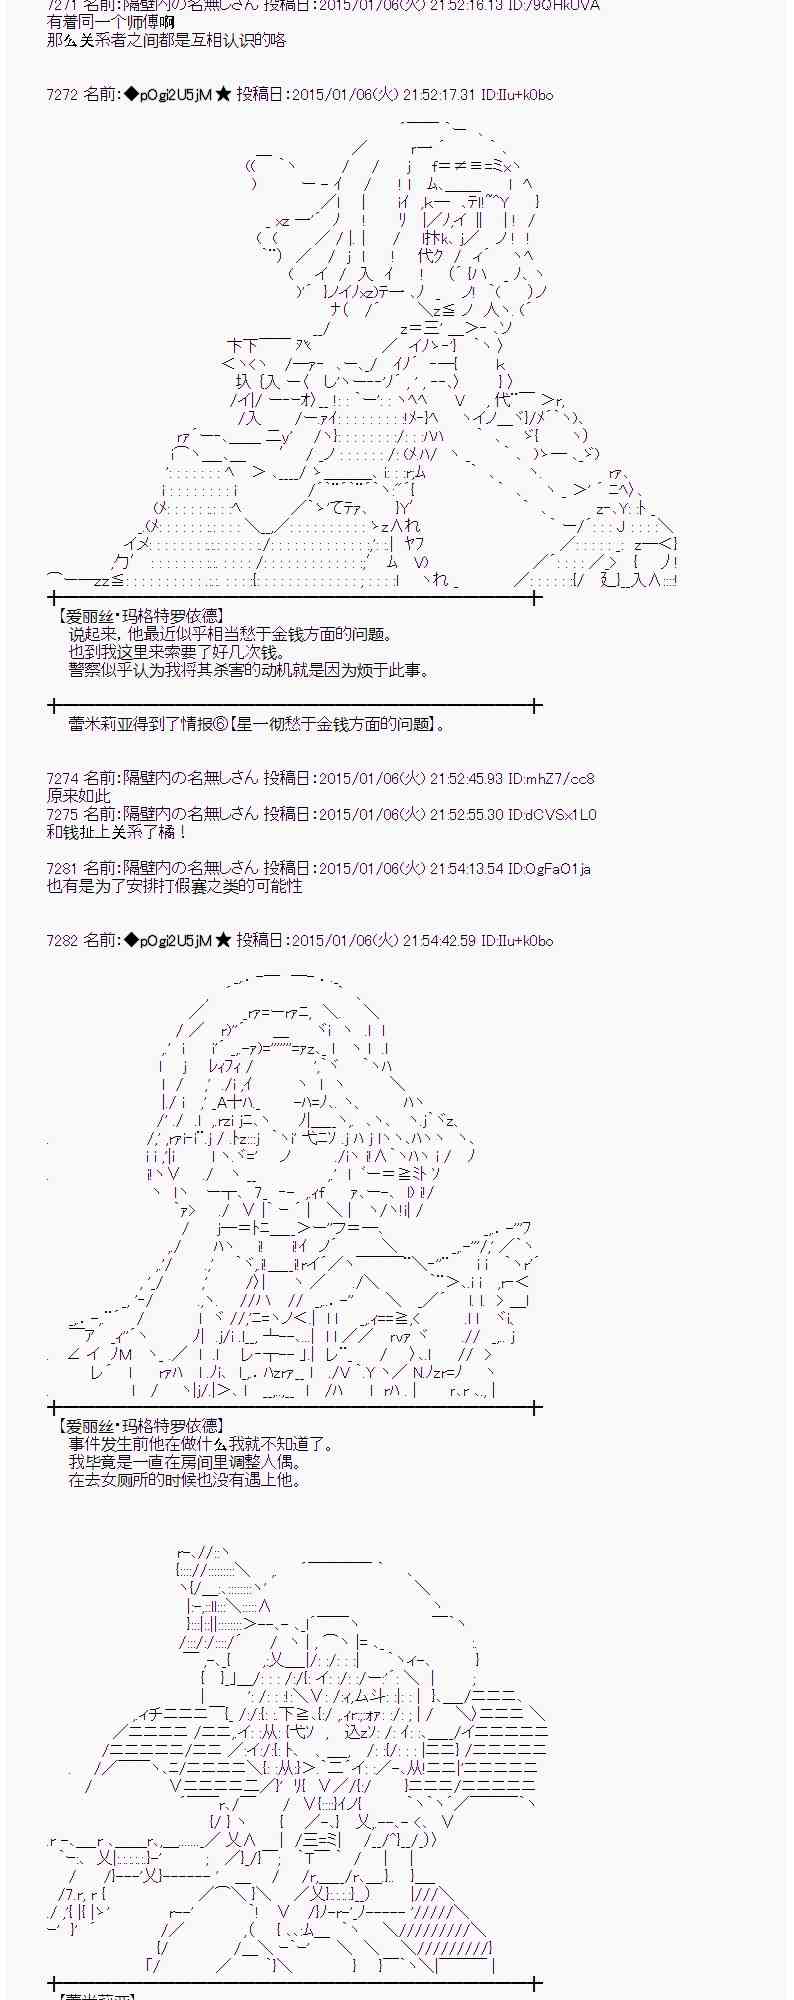 7271 名前：隔壁内の名無しさん 投稿日：2015/01/06(火) 21:52:16.13 ID:/9QHkUVA
有着同一个师傅啊
那么关系者之间都是互相认识的咯
7272 名前：◆pOgi2U5jM ★ 投稿日：2015/01/06(火) 21:52:17.31 ID:IIu+k0bo
【爱丽丝·玛格特罗依德】
说起来，他最近似乎相当愁于金钱方面的问题。
也到我这里来索要了好几次钱。
警察似乎认为我将其杀害的动机就是因为烦于此事。
蕾米莉亚得到了情报⑥【星一彻愁于金钱方面的问题】。
7274 名前：隔壁内の名無しさん 投稿日：2015/01/06(火) 21:52:45.93 ID:mhZ7/cc8
原来如此
7275 名前：隔壁内の名無しさん 投稿日：2015/01/06(火) 21:52:55.30 ID:dCVSx1L0
和钱扯上关系了橘！
7281 名前：隔壁内の名無しさん 投稿日：2015/01/06(火) 21:54:13.54 ID:OgFaO1ja
也有是为了安排打假赛之类的可能性
7282 名前：◆pOgi2U5jM ★ 投稿日：2015/01/06(火) 21:54:42.59 ID:IIu+k0bo
【爱丽丝·玛格特罗依德】
事件发生前他在做什么我就不知道了。
我毕竟是一直在房间里调整人偶。
在去女厕所的时候也没有遇上他。